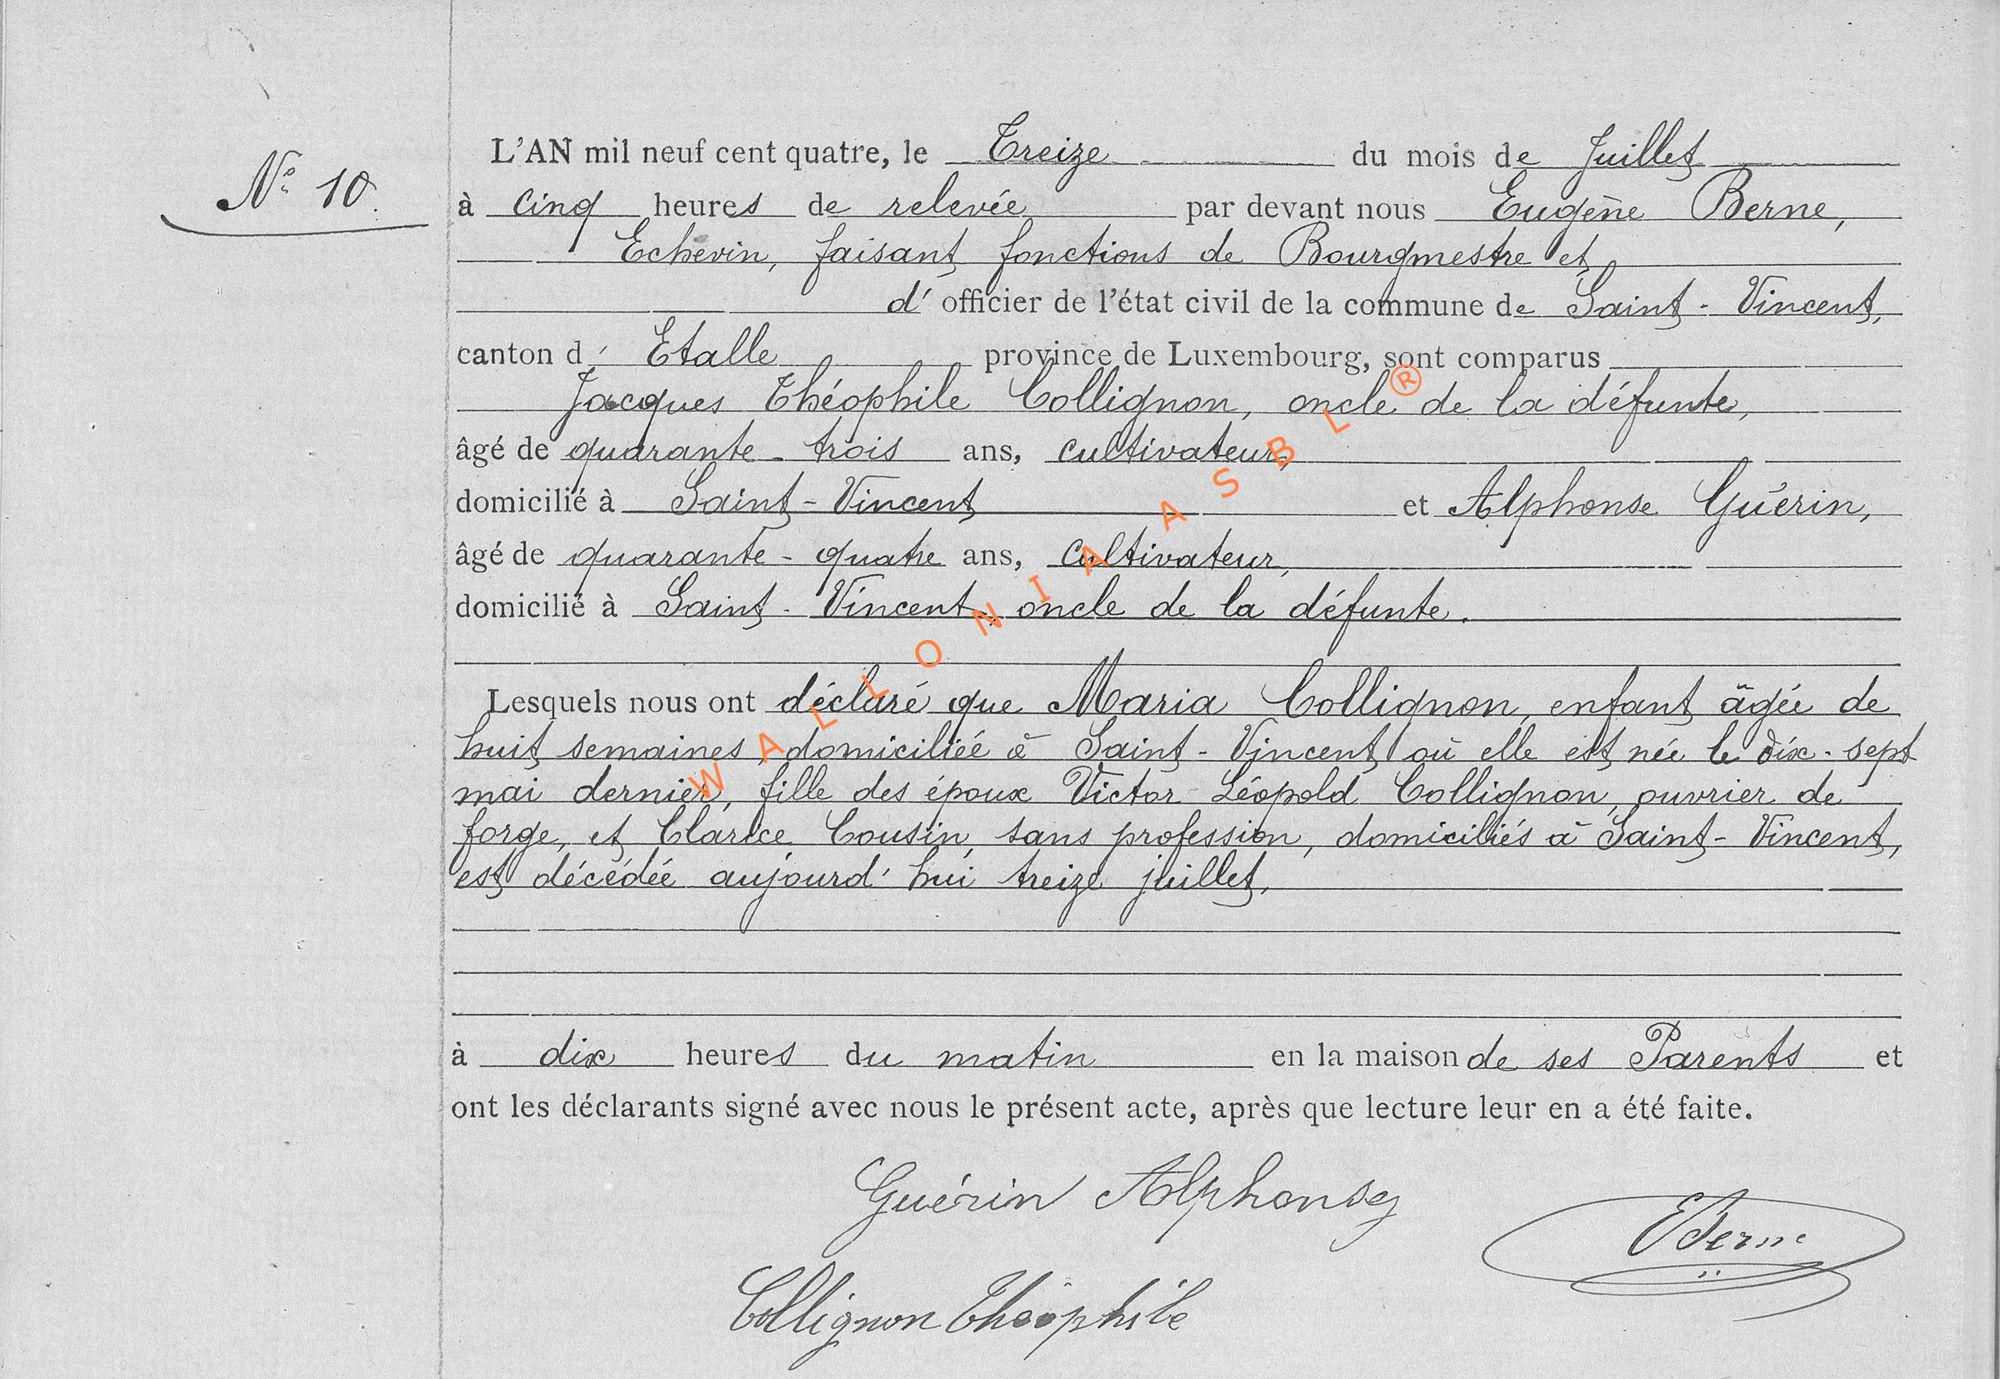 N° 10.
L'AN mil neuf cent quatre, le Treize du mois de Juillet
à cinq heures de relevée par devant nous Eugène Berne,
Echevin, faisant fonctions de Bourgmestre et
d'officier de l'état civil de la commune de Saint-Vincent,
canton d'Etalle province de Luxembourg, sont comparus
Jacques Théophile Collignon, oncle de la défunte,
âgé de quarante-trois ans, cultivateur,
domicilié à Saint-Vincent et Alphonse Guérin,
âgé de quarante-quatre ans, cultivateur,
domicilié à Saint-Vincent, oncle de la défunte.
Lesquels nous ont déclaré que Maria Collignon, enfant âgée de
huit semaines, domiciliée à Saint-Vincent où elle est née le dix-sept
mai dernier, fille des époux Victor Léopold Collignon, ouvrier de
forge, et Clarice Cousin, sans profession, domiciliés à Saint-Vincent,
est décédée aujourd'hui treize juillet,
à dix heures du matin en la maison de ses Parents et
ont les déclarants signé avec nous le présent acte, après que lecture leur en a été faite.
Guérin Alphonse
EBerne
Collignon Théophile
WALLONIA ASBL ®